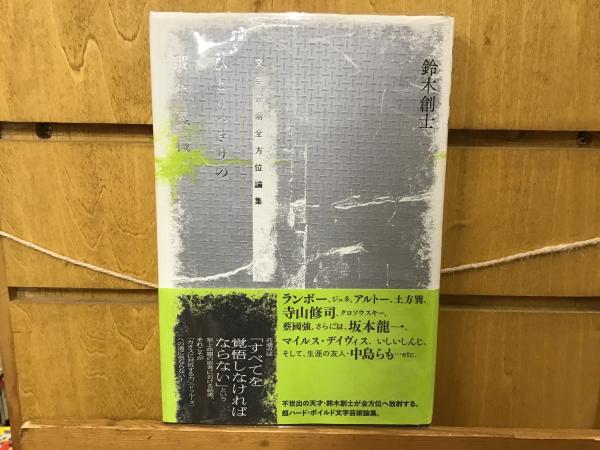 鈴木創士
文学芸術全方位論集
ひとりっきりの
戦争機械
ランボー、ジュネ、アルトー、土方巽、
寺山修司、クロソウスキー、
蔡國強、さらには、坂本龍一、
マイルス・デイヴィス、いしいしんじ、
そして、生涯の友人・中島らも…etc.
不世出の天才・鈴木創士が全方位へ放射する、
超ハード・ボイルド文学芸術論集。
「すべてを
覚悟しなければ
ならない」という
それこそが